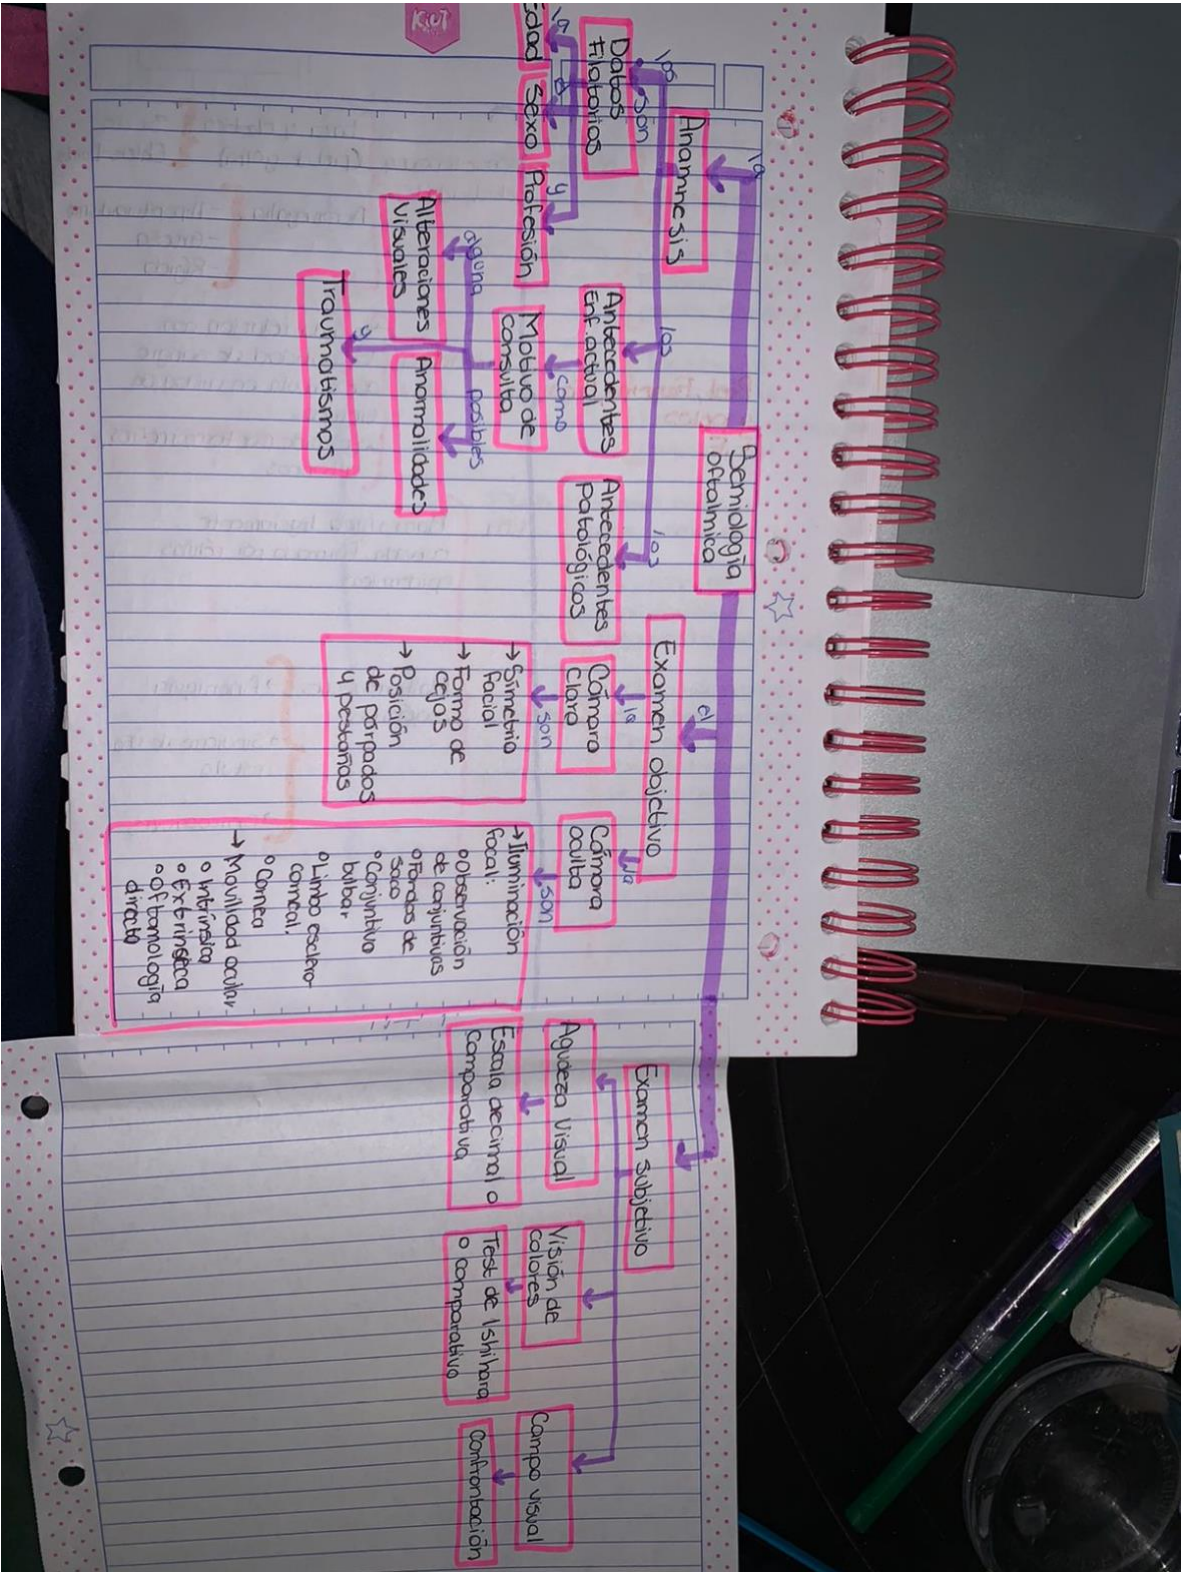 KiUT
Semiología
oftalmica
la
Anamnesis
son
los
Datos
filatorios
la
el
y
Edad
Sexo
Profesión
los
Antecedentes
Enf. actual
como
Motivo de
consulta
alguna
posibles
Alteraciones
Visuales
Anormalidades
y
Traumatismos
los
Antecedentes
patológicos
el
Examen objetivo
la
Cámara
Clara
son
→ Simetria
facial
→ Forma de
cejas
→ Posición
de parpados
y pestañas
la
Cámara
oculta
son
→ Iluminación
focal:
° Observación
de conjuntivas
° Fondos de
saco
° Conjuntiva
bulbar
° Limbo esclero
corneal.
° Cornea
→ Movilidad ocular.
° Intrínsica
° Extrinseca
° oftomología
directa
Examen Subjetivo
Agudeza Visual
Escala decimal o
Comparativa
Visión de
colores
Test de Ishihara
o comparativo
Campo visual
Confrontación